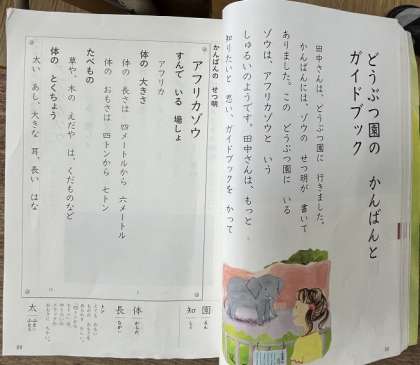 どうぶつ園の かんばんと
ガイドブック
田中さんは、どうぶつ園に 行きました。
かんばんには、ゾウの せつ明が 書いて
ありました。この どうぶつ園に いる
ゾウは、アフリカゾウと いう
しゅるいのようです。田中さんは、もっと
知りたいと 思い、ガイドブックを かって
かんばんの せつ明
アフリカゾウ
すんで いる 場しょ
アフリカ
体の 大きさ
体の 長さは 四メートルから 六メートル
体の おもさは 四トンから 七トン
たべもの
草や、木の えだや は、くだものなど
体の とくちょう
太い あし、大きな 耳、長い はな
園
知
長
体
太